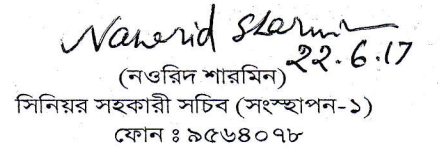 Nawrid Sharmin
22.6.17
(নওরিদ শারমিন)
সিনিয়র সহকারী সচিব (সংস্হাপন-১)
ফোন ঃ ৯৫৬৪০৭৮